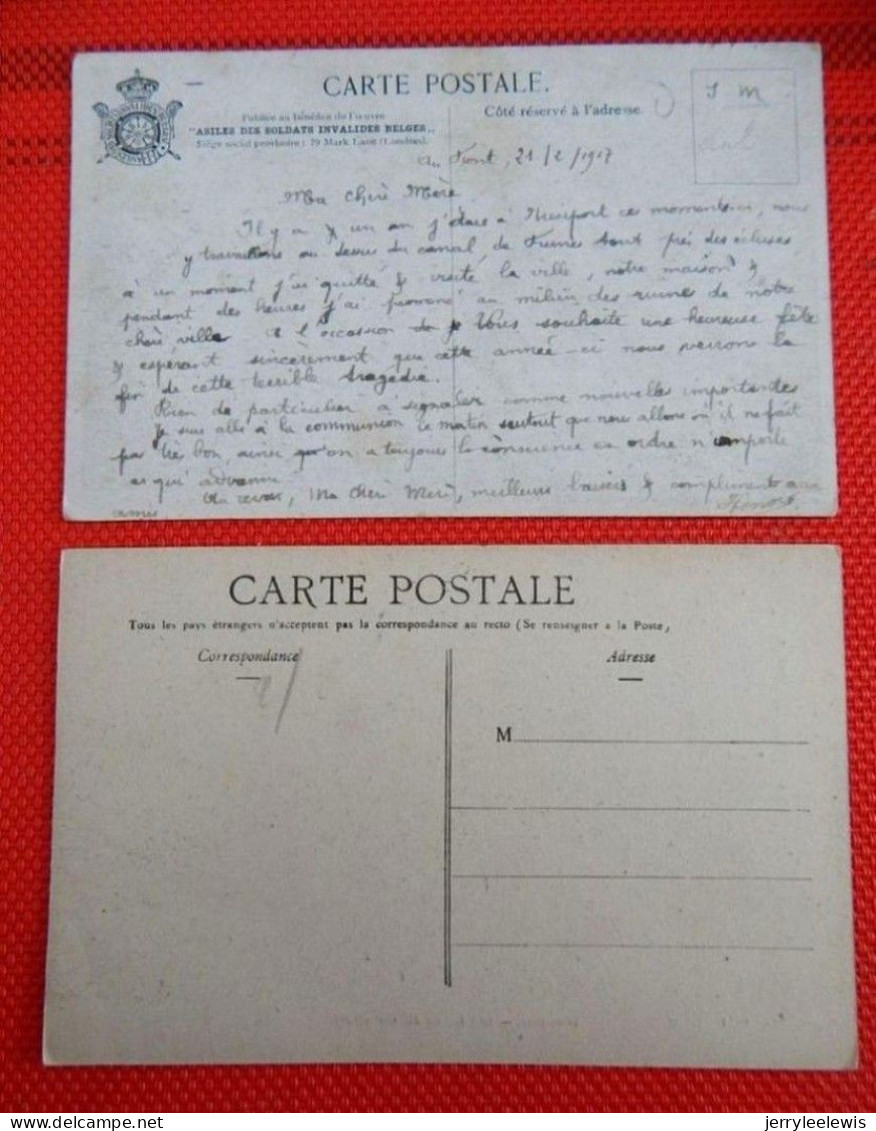 CARTE POSTALE.
Publiée au bénéfice de l'œuvre
"ASILES DES SOLDATS INVALIDES BELGES„
Siège social provisoire : 79 Mark Lane (Londres).
Côté réservé à l'adresse.
S M
au Front, 21/2/1917
Ma chère Mère
Il y a un an j'étais à Nieuport ces moments-ci, nous
y travaillions au dessus du canal de Furnes tout près des écluses
à un moment j'ai quitté & visité la ville, notre maison &
pendant des heures j'ai au milieu des ruines de notre
chère ville a l'occasion de je Vous souhaite une heureuse fête
& espérant sincèrement que cette année-ci nous verrons la
fin de cette terrible tragédie.
Rien de particulier à signaler comme nouvelles importantes
Je suis allé à la communion ce matin surtout que nous allons où il ne fait
pas très bon, ainsi qu'on a toujours la conscience en ordre n'importe
ce qui advienne
Au revoir, Ma chère Mère, meilleurs baisers & compliments aux
amis
CARTE POSTALE
Tous les pays étrangers n'acceptent pas la correspondance au recto (Se renseigner a la Poste,
Correspondance
Adresse
M
delcampe.net
jerryleelewis